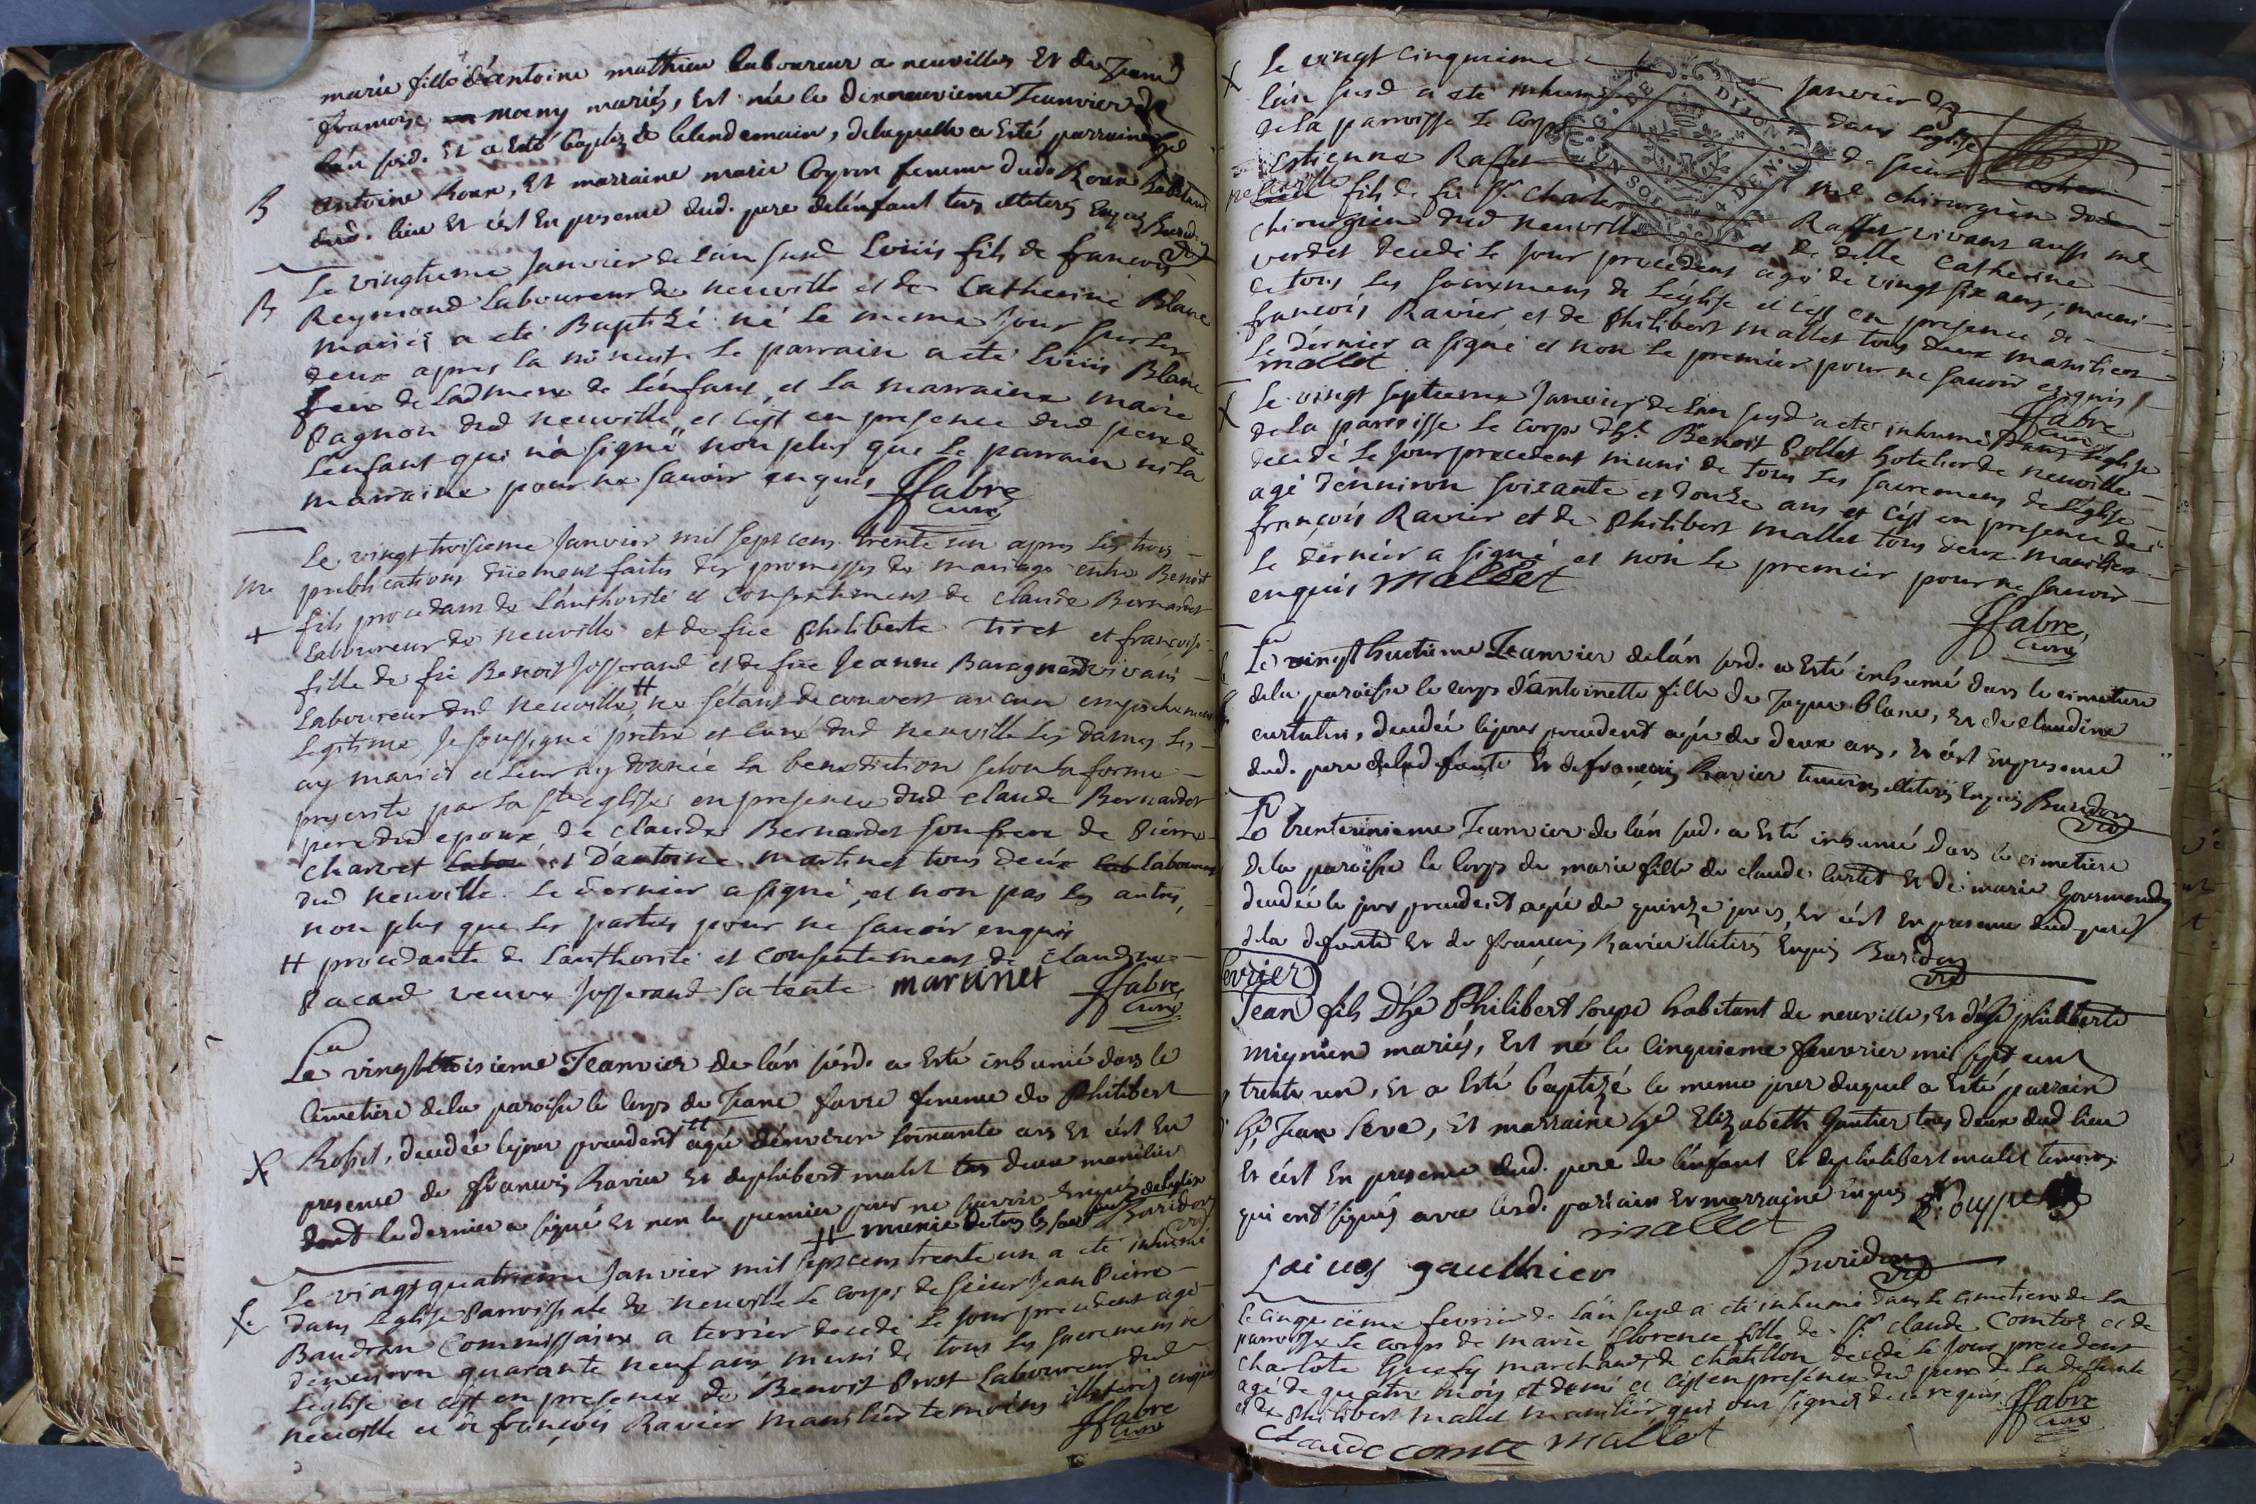 marie fille d'antoine mathieu laboureur a neuvilles Et de Jeane
françoise moeny mariés, Est née le dixneuvieme Jeanvier de
lán susd. Et a Esté baptizée le lendemain, de laquelle a Esté parrain
B antoine Roux, Et marraine marie Coyron femme dud. Roux habitant
dud. lieu Et c'est En presence dud. pere de l'enfant tous illiterés Enquis Buridon
vic
B Le vingtieme Janvier de l'an susd Loüis fils de francois
Reymond Laboureur de neuville et de Catherine Blanc
mariés a eté Baptizé né le meme jour sur les
deux apres la minuit. le parrain a eté loüis Blanc
frere de lad mere de l'enfant, et la marraine marie
Pagnon dud neuville et c'est en presence dud pere de
l'enfant qui n'a signé non plus que le parrain ni la
marraine pour ne sauoir enquis ffabre
curé
Le vingt troisieme Janvier mil sept cens trente un apres les trois
publications düement faites des promesses de mariage entre Benoit
fils procedant de l'authorité et consentement de claude Bernardet
Laboureur de neuville et de füe Philiberte Tiret et françoise
fille de fü Benoit Josserand et de füe Jeanne Baragnard vivans
Laboureur dud neuville, # ne s'étant decouvert aucun empechement
Legitime, Je soussigné pretre et curé dud neuville les dames les
ay mariés et leur ay donnée la benediction selon la forme
prescrite par la ste eglise en presence dud claude Bernardet
pere dud epoux, de claude Bernardet son frere de Pierre
charvet et d'antoine martinet tous deux Laboureurs
dud neuville. Le dernier a signé, et non pas les autres,
non plus que les parties pour ne sauoir enquis
# procedante de l'authorité et consentement de claudine
Pacaud veuve Josserand sa tante martinet ffabre
curé
Le vingt troisieme Jeanvier de lán susd. a Esté inhumé dans le
cimetiere de la paroisse le corps de Jeane favre femme de Philibert
X Robet, decedée le jour precedent # agée d'environ soixante ans Et c'est En
presence de francois Ravier Et de philibert malet tous deux manilier
dont le dernier a signé Et non le premier pour ne sauoir Enquis
# munie de tous les sacremens de l'eglise Buridon
vic
X Le vingt quatrieme Janvier mil sept cens trente un a eté inhumé
dans l'eglise Parroissiale de neuville le corps de sieur Jean Pierre
Baudran Commissaire a terrier decedé le jour precedent agé
d'environ quarante neuf ans muni de tous les sacremens de
l'eglise et c'est en presence de Benoit Prost Laboureur dud
neuville et de françois Ravier manilier temoins illiterés enquis
ffabre
curé
X Le vingt cinquieme Janvier de
l'an susd a eté inhumé dans l'eglise
de la parroisse le corps de sieur
Estienne Raffet me chirurgien dud
neuville fils de fü sr Charles Raffet vivant aussi me
chirurgien dud neuville et de delle Catherine
verdet decedé le jour precedent agé de vingt six ans, muni
de tous les sacremens de l'église et c'est en presence de
françois Ravier et de Philibert mallet tous deux maniliers
le dernier a signé et non le premier pour ne sauoir enquis
mallet ffabre
curé
X Le vingt septieme Janvier de l'an susd a eté inhumé dans l'eglise
de la parroisse le corps d'h. Benoit Pollet hotelier de neuville
decedé le jour precedent muni de tous les sacremens de l'église
agé d'enuiron soixante et douze ans et c'est en presence de
françois Ravier et de Philibert mallet tous deux maniliers
le dernier a signé et non le premier pour ne sauoir
enquis mallet
ffabre
curé
Le vingt huitieme Jeanvier de lán susd. a Esté inhumé dans le cimetiere
de la paroisse le corps d'antoinette fille de Jaque blanc, Et de claudine
curtelin, decedée le jour precedent agée de deux ans, Et c'est En presence
dud. pere de lad. fante Et de françois Ravier temoins illiterés Enquis Buridon
vic
Le trente unieme Jeanvier de lán susd. a Esté inhumé dans le cimetiere
de la paroisse le corps de marie fille de claude curtet Et de marie Gourmandy
decedée le jour precedent agée de quinze jours, Et c'est En presence dud. pere
de la defunte Et de françois Ravier illiterés Enquis Buridon
vic
fevrier
Jean fils D'he Philibert soupe habitant de neuville, Et d'he philiberte
mignien mariés, Est né le Cinquieme feuvrier mil sept cent
trente un, Et a Esté baptizé le meme jour duquel a Esté parrain
he Jean Seve, Et marraine he Elizabeth Gautier tous deux dud lieu
Et c'est En presence dud. pere de l'enfant Et de philibert malet temoins
qui ont signés avec lesd. parrain Et marraine Enquis
mallet
gaulhier Buridon
vic
Le cinquieme fevrier de l'an susd a eté inhumé dans le cimetiere de la
parroisse le corps de marie florence fille de sr claude Comte et de
charlote marchand de chatillon decedé le jour precedent
agé de quatre mois et demi et c'est en presence dud pere de la defunte
et de Philibert mallet manilier qui ont signés de ce requis ffabre
curé
claude comte mallet